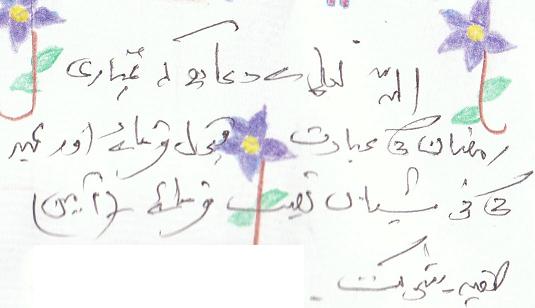 اللہ تعالیٰ سے دعا ہے کہ تمہاری
رمضان کی عبادت قبول فرمائے اور عید
کی خوشیاں نصیب فرمائے (آمین)
شوکت